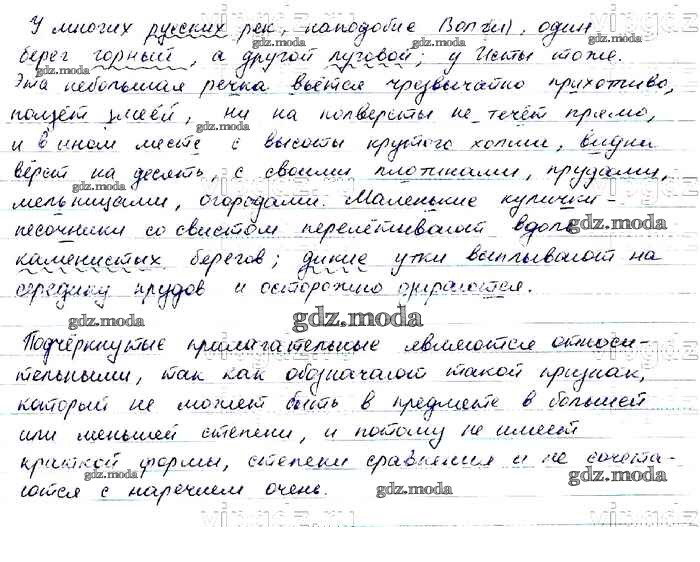 У многих русских рек, наподобие Волги, один
берег горный, а другой луговой; у Исты тоже.
Эта небольшая речка вьётся чрезвычайно прихотливо,
ползёт змеёй, ни на полверсты не течёт прямо,
и в ином месте с высоты крутого холма, видна
вёрст на десять, с своими плотинами, прудами,
мельницами, огородами. Маленькие кулички-
песочники со свистом перелётывают вдоль
каменистых берегов; дикие утки выплывают на
середину прудов и осторожно озираются.
gdz.moda
Подчёркнутые прилагательные являются относи-
тельными, так как обозначают такой признак,
который не может быть в предмете в большей
или меньшей степени, и потому не имеет
краткой формы, степени сравнения и не сочета-
ются с наречием очень.
gdz.moda